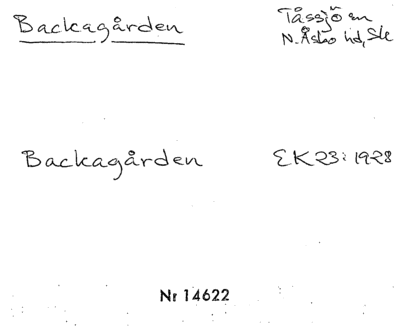 Backagården
Tåssjö sn
N. Åsbo hd, Sk
Backagården
EK 23: 1928
Nr 14622